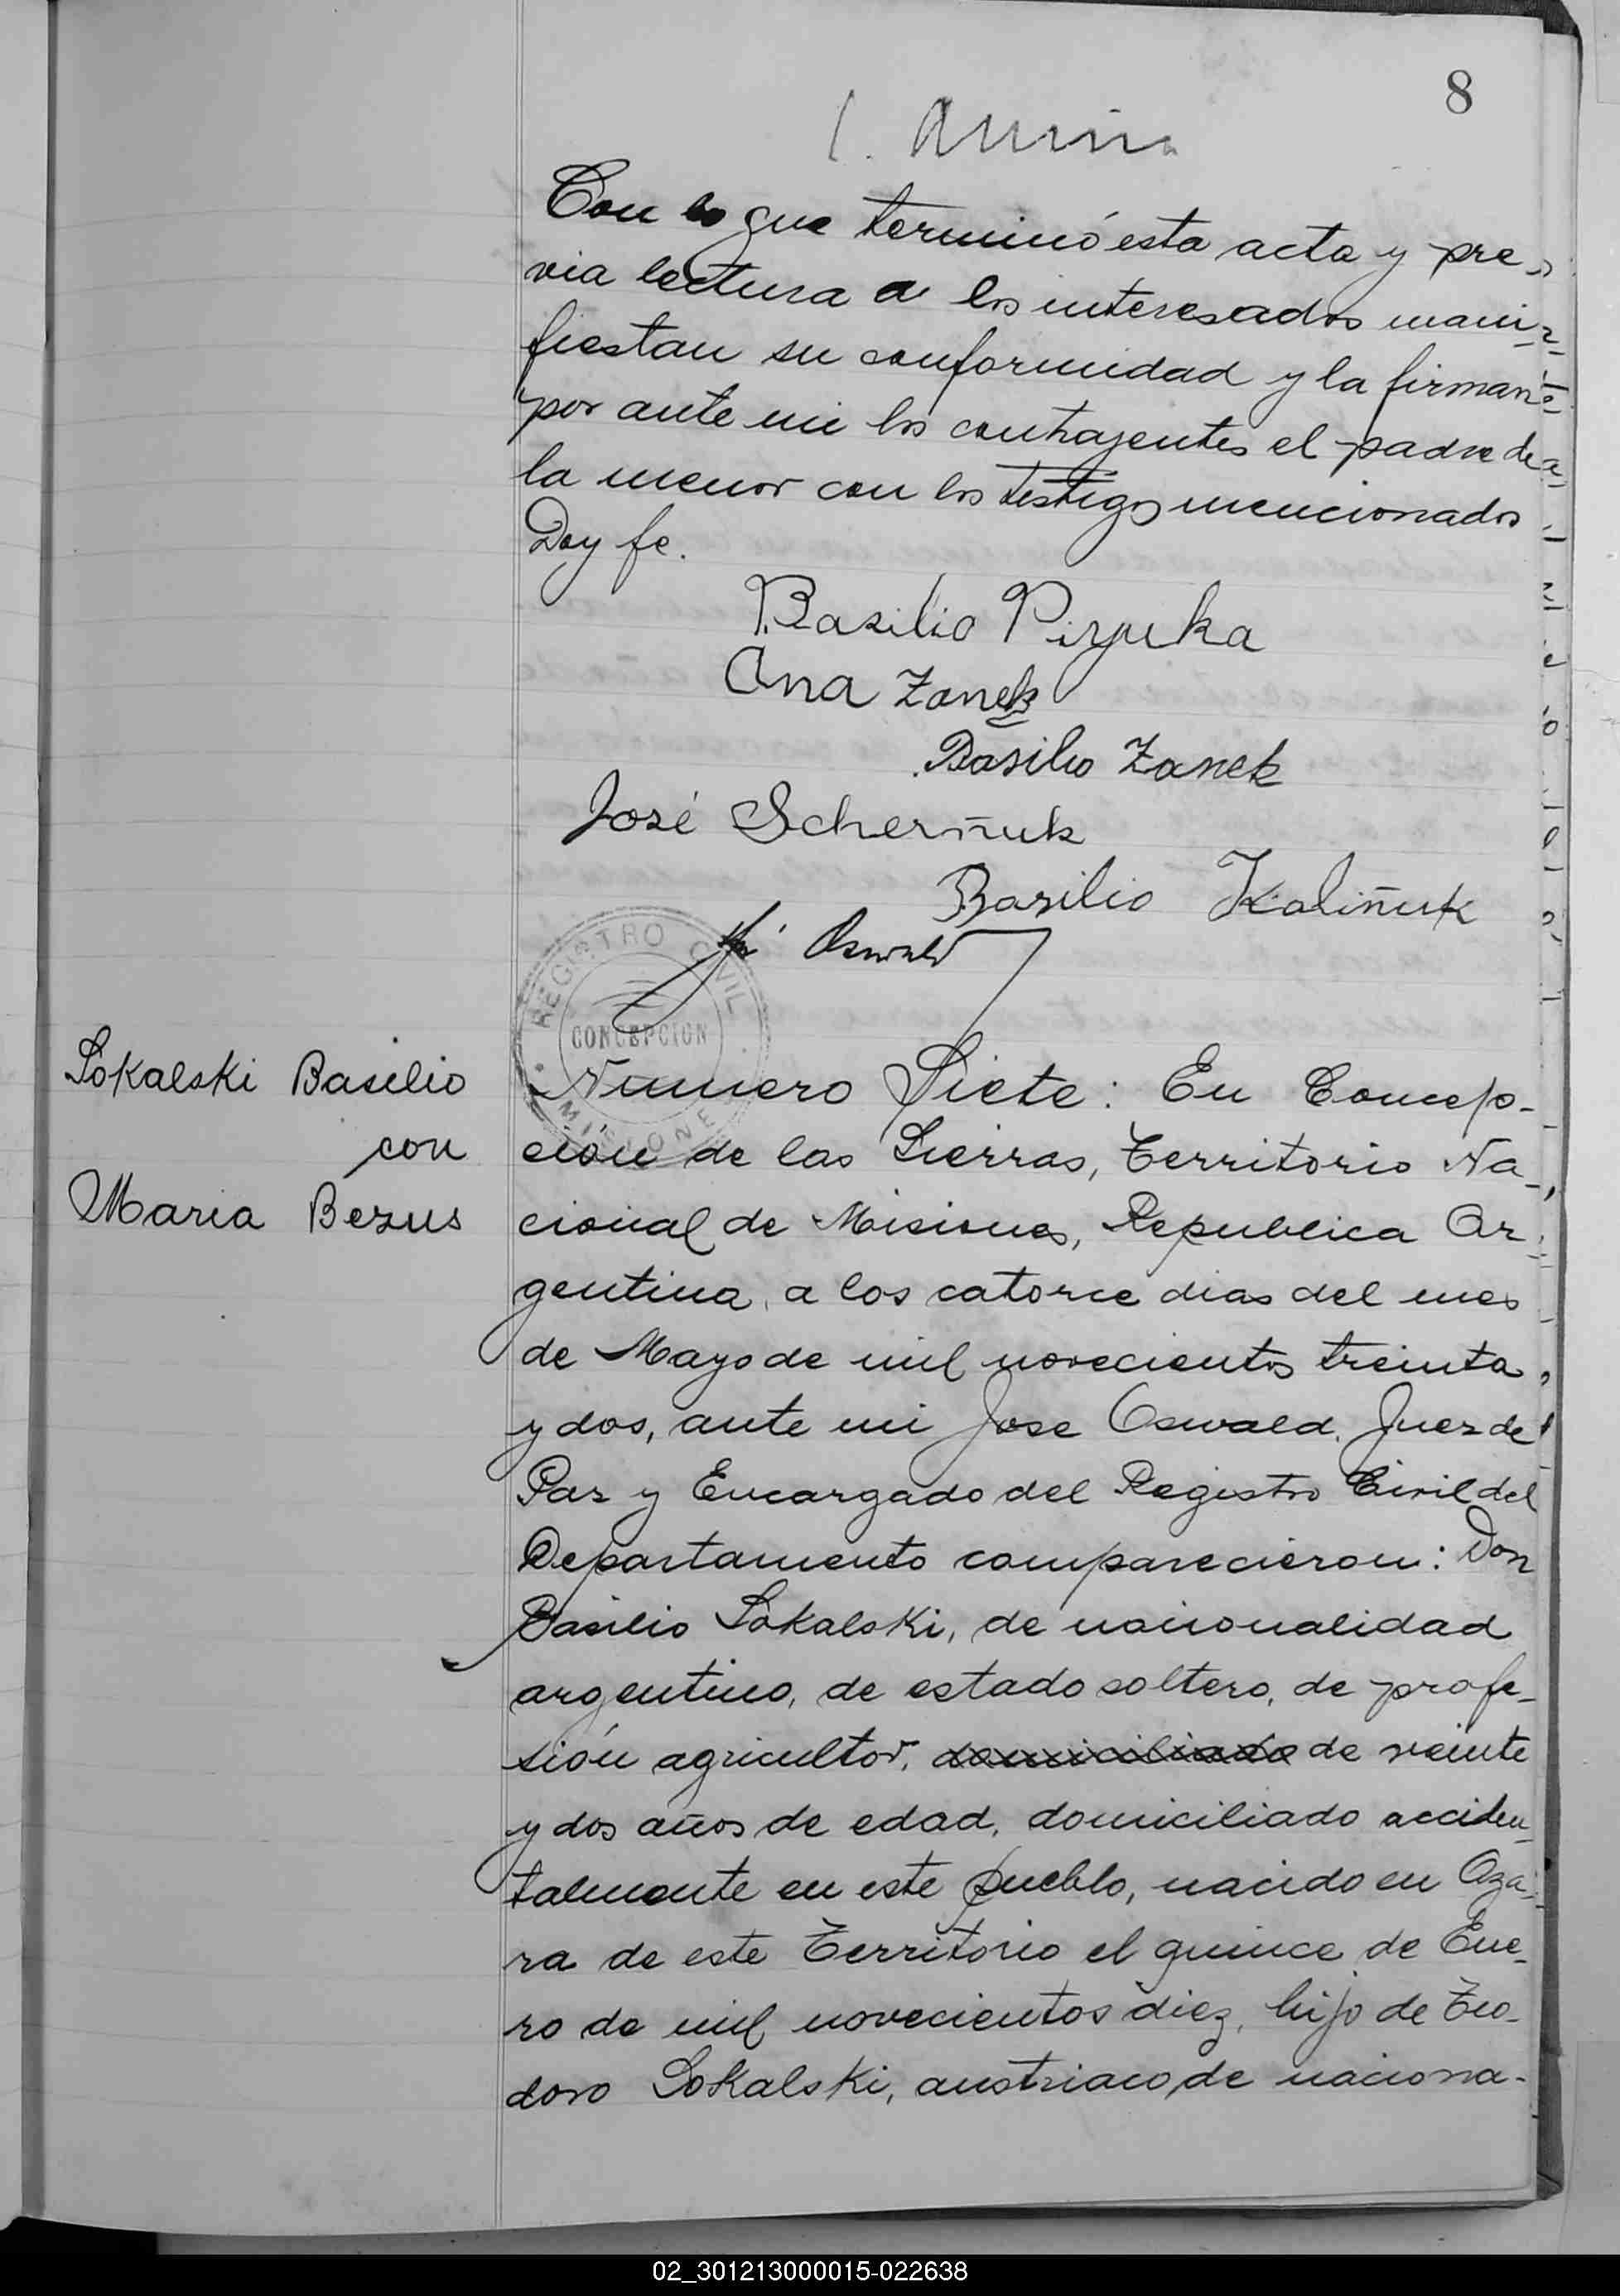 8
Con lo que terminó esta acta y pre-
via lectura a los interesados mani-
fiestan su conformidad y la firman
por ante mi los contrayentes el padre de
la menor con los testigos mencionados
Doy fe.
Basilio
Ana Zanek
Basilio Zanek
José Scherñuk
Basilio Kaliñuk
Oswald
REGISTRO CIVIL
CONCEPCION
MISIONES
Sokalski Basilio
con
Maria Bezus
Numero Siete: En Concep-
ción de las Sierras, Territorio Na-
cional de Misiones, Republica Ar-
gentina, a los catorce dias del mes
de Mayo de mil novecientos treinta
y dos, ante mi Jose Oswald. Juez de
Paz y Encargado del Registro Civil del
Departamento comparecieron: Don
Basilio Sokalski, de nacionalidad
argentino, de estado soltero, de profe-
sión agricultor, domiciliado de veinte
y dos años de edad, domiciliado acciden-
talmente en este pueblo, nacido en Aza-
ra de este Territorio el quince de Ene-
ro de mil novecientos diez, hijo de Teo-
doro Sokalski, austriaco de naciona-
02_301213000015-022638